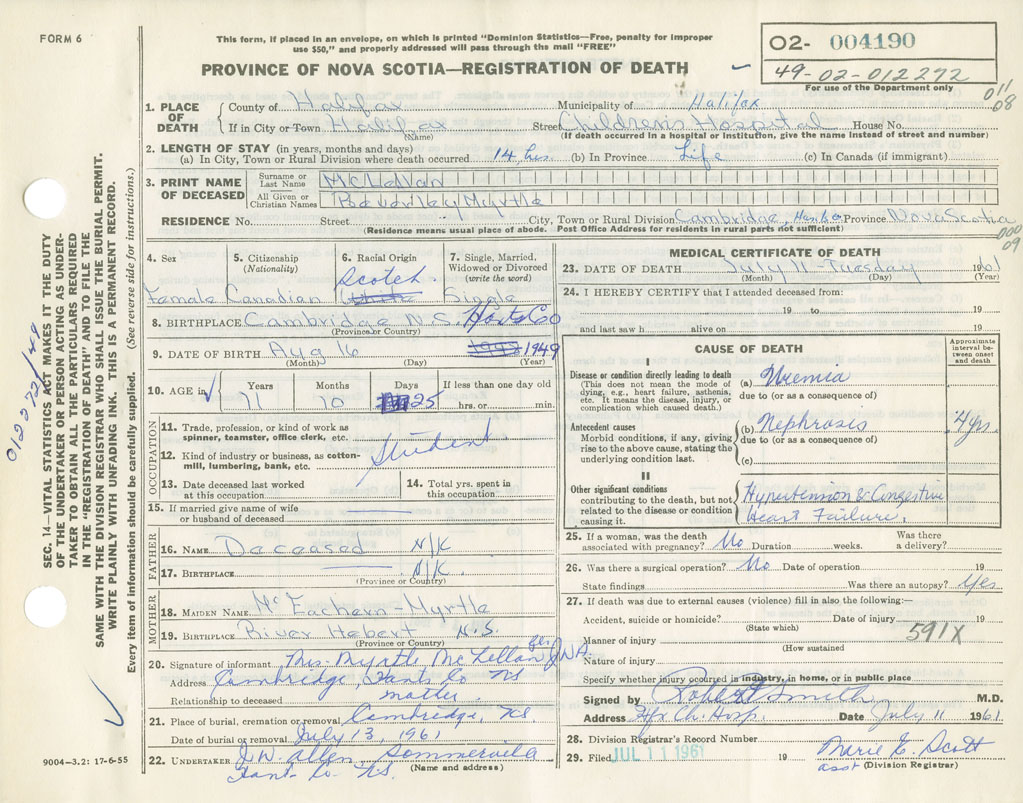 FORM 6
This form, if placed in an envelope, on which is printed "Dominion Statistics—Free, penalty for improper
use $50," and properly addressed will pass through the mail "FREE"
PROVINCE OF NOVA SCOTIA—REGISTRATION OF DEATH
02- 004190
49-02-012272
For use of the Department only
011
08
1. PLACE OF DEATH
County of Halifax Municipality of Halifax
If in City or Town Halifax Street Children's Hospital House No.
(Name) (If death occurred in a hospital or institution, give the name instead of street and number)
2. LENGTH OF STAY (in years, months and days)
(a) In City, Town or Rural Division where death occurred 14 hrs. (b) In Province Life (c) In Canada (if immigrant)
3. PRINT NAME OF DECEASED
Surname or Last Name McLellan
All Given or Christian Names Beverley Myrtle
RESIDENCE No. Street City, Town or Rural Division Cambridge, Hants Co Province Nova Scotia
(Residence means usual place of abode. Post Office Address for residents in rural parts not sufficient)
000
09
4. Sex 5. Citizenship 6. Racial Origin 7. Single, Married,
(Nationality) Widowed or Divorced
(write the word)
Scotch
Female Canadian Single
8. BIRTHPLACE Cambridge N.S. Hants Co
(Province or Country)
9. DATE OF BIRTH Aug 16 1949
(Month) (Day) (Year)
10. AGE in Years Months Days If less than one day old
11 10 25 hrs. or min.
OCCUPATION
11. Trade, profession, or kind of work as
spinner, teamster, office clerk, etc.
Student
12. Kind of industry or business, as cotton-
mill, lumbering, bank, etc.
13. Date deceased last worked
at this occupation
14. Total yrs. spent in
this occupation
15. If married give name of wife
or husband of deceased
FATHER
16. NAME Deceased N/K
17. BIRTHPLACE N/K
(Province or Country)
MOTHER
18. MAIDEN NAME McEachern - Myrtle
19. BIRTHPLACE River Hebert N.S.
(Province or Country)
20. Signature of informant Mrs. Myrtle McLellan per J.W.A.
Address Cambridge, Hants Co NS
Relationship to deceased mother
21. Place of burial, cremation or removal Cambridge, NS
Date of burial or removal July 13, 1961
22. UNDERTAKER J.W. Allen Sommervile
Hants Co NS.
(Name and address)
MEDICAL CERTIFICATE OF DEATH
23. DATE OF DEATH July 11 - Tuesday 1961
(Month) (Day) (Year)
24. I HEREBY CERTIFY that I attended deceased from:
19 to 19
and last saw h alive on 19
CAUSE OF DEATH
Approximate
interval be-
tween onset
and death
I
Disease or condition directly leading to death
(This does not mean the mode of
dying, e.g., heart failure, asthenia,
etc. It means the disease, injury, or
complication which caused death.)
(a) Uremia
due to (or as a consequence of)
Antecedent causes
Morbid conditions, if any, giving
rise to the above cause, stating the
underlying condition last.
(b) Nephrosis 4 yrs.
due to (or as a consequence of)
(c)
II
Other significant conditions
contributing to the death, but not
related to the disease or condition
causing it.
Hypertension & Congestive
Heart Failure.
25. If a woman, was the death Was there
associated with pregnancy? No Duration weeks. a delivery?
26. Was there a surgical operation? No Date of operation 19
State findings Was there an autopsy? Yes
27. If death was due to external causes (violence) fill in also the following:—
Accident, suicide or homicide? Date of injury 19
(State which)
591X
Manner of injury
(How sustained
Nature of injury
Specify whether injury occurred in industry, in home, or in public place
Signed by Robert Smith M.D.
Address Hfx Ch. Hosp. Date July 11 1961.
28. Division Registrar's Record Number
29. Filed JUL 11 1961 19 Marie E. Scott
asst (Division Registrar)
9004—3.2: 17-6-55
SEC. 14—VITAL STATISTICS ACT MAKES IT THE DUTY
OF THE UNDERTAKER OR PERSON ACTING AS UNDER-
TAKER TO OBTAIN ALL THE PARTICULARS REQUIRED
IN THE "REGISTRATION OF DEATH" AND TO FILE THE
SAME WITH THE DIVISION REGISTRAR WHO SHALL ISSUE THE BURIAL PERMIT.
WRITE PLAINLY WITH UNFADING INK. THIS IS A PERMANENT RECORD.
Every item of information should be carefully supplied. (See reverse side for instructions.)
012272/49